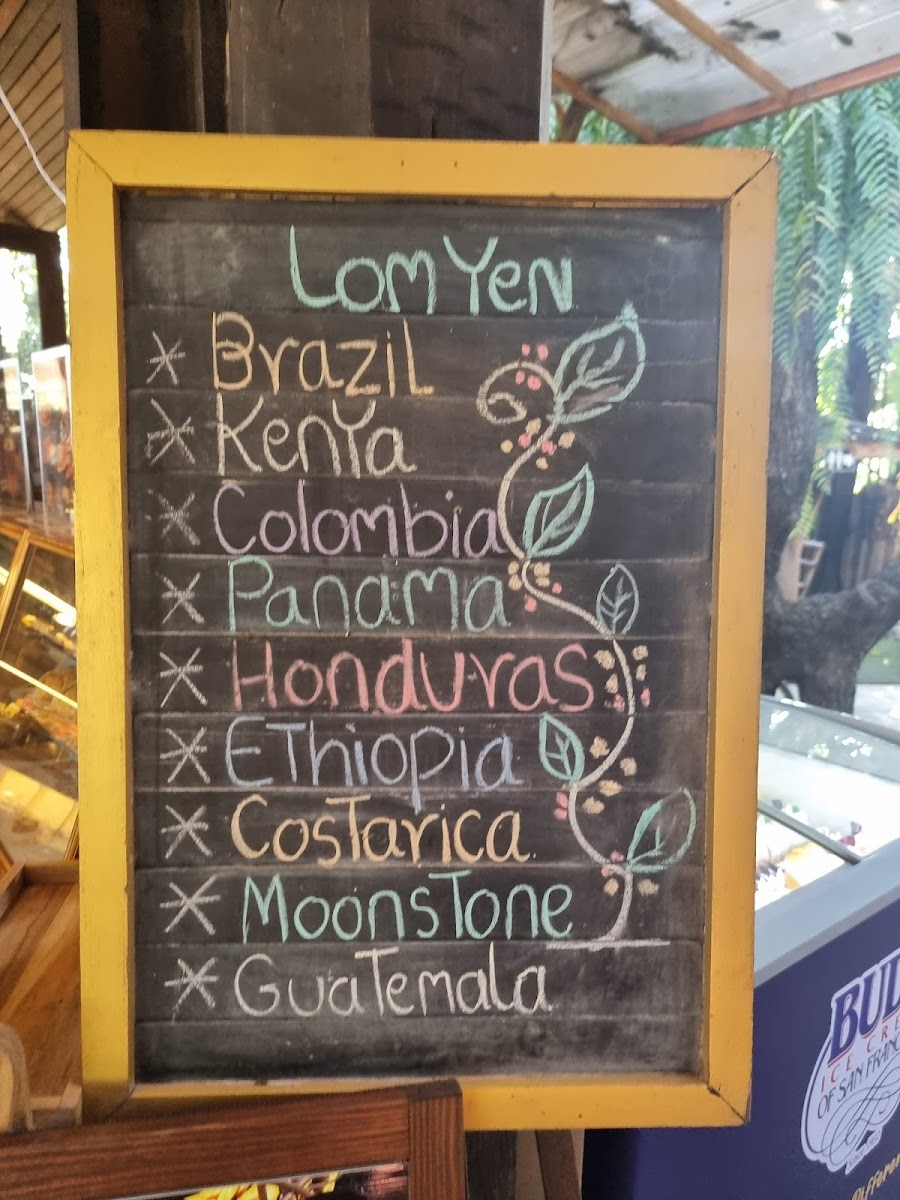 LomYeN
* Brazil
* Kenya
* Colombia
* Panama
* Honduras
* EThiopia
* CosTarica
* MoonsTone
* GuaTemala
BUD
ICE CRE
OF SAN FRANC
Differen